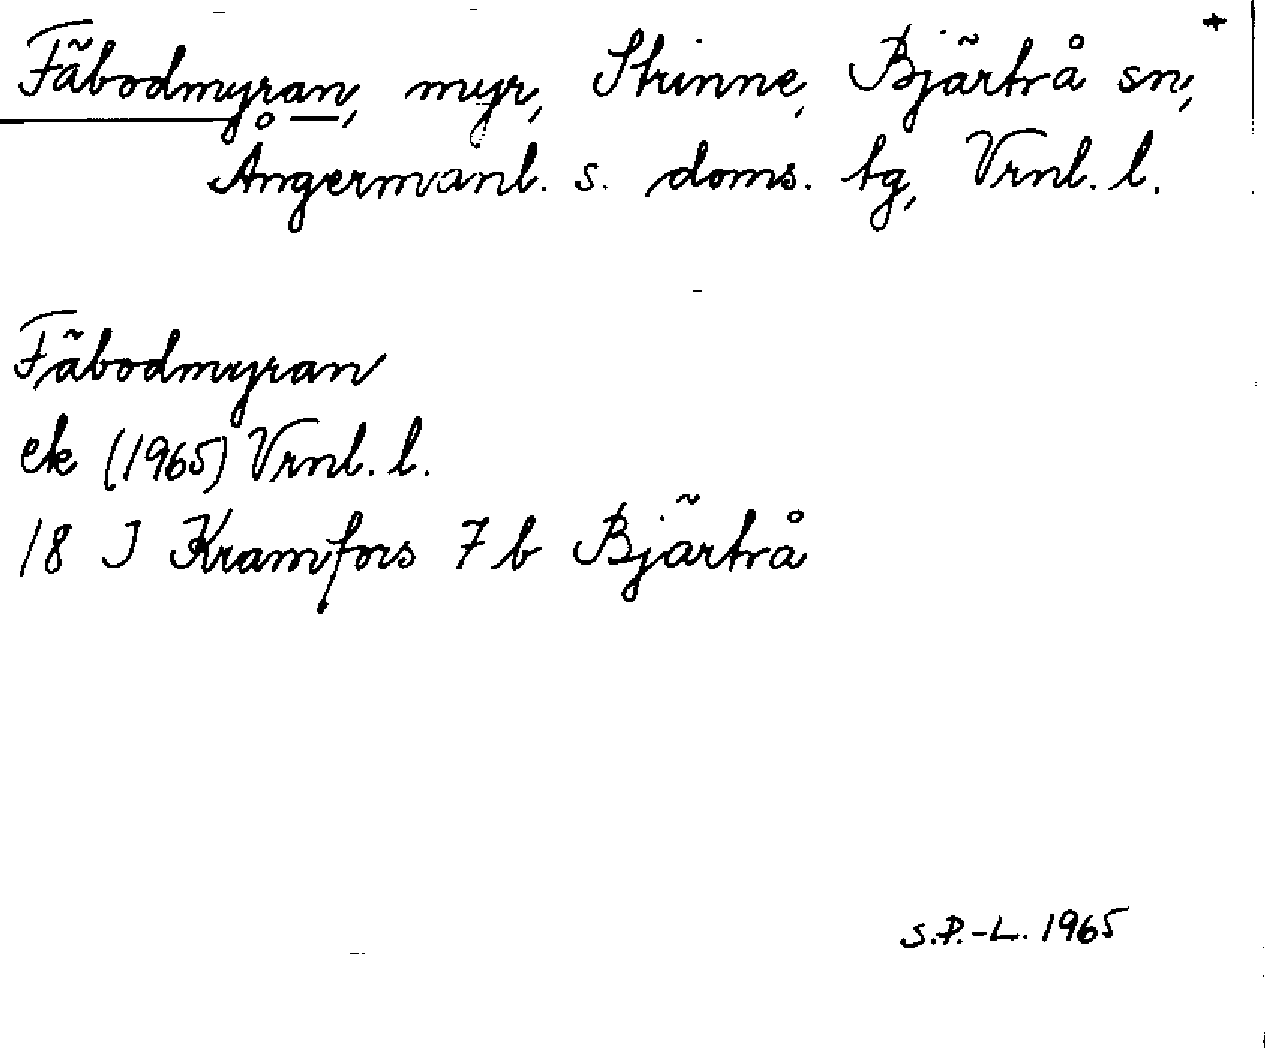 Fäbodmyran, myr, Strinne, Bjärtrå sn, +
Ångermanl. s. doms. tg, Vrnl. l.
Fäbodmyran
ek (1965) Vrnl. l.
18 I Kramfors 7 b Bjärtrå
S.P.-L. 1965